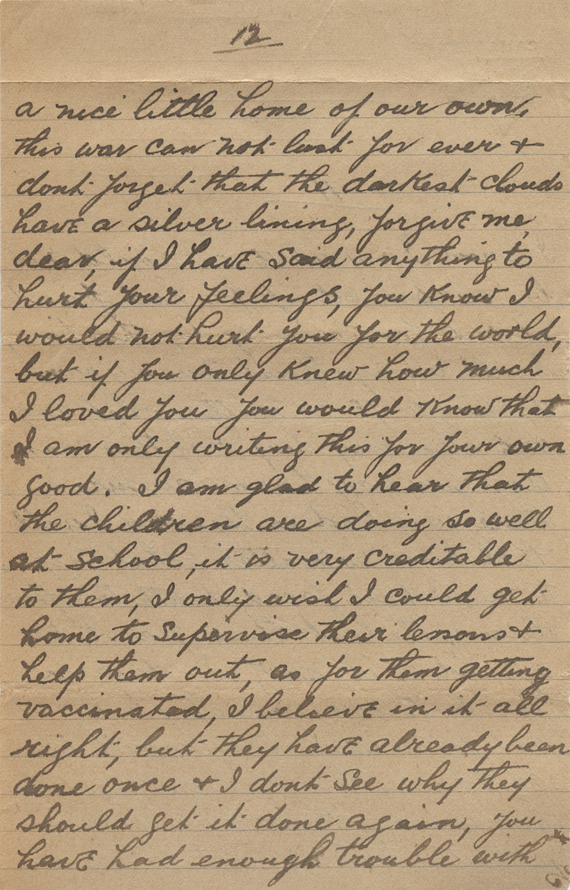 12
a nice little home of our own,
this war can not last for ever +
dont forget that the darkest clouds
have a silver lining, forgive me
dear, if I have said anything to
hurt your feelings, you know I
would not hurt you for the world,
but if you only knew how much
I loved you you would know that
I am only writing this for your own
good. I am glad to hear that
the children are doing so well
at school, it is very creditable
to them, I only wish I could get
home to supervise their lessons +
help them out, as for them getting
vaccinated, I believe in it all
right, but they have already been
done once + I dont see why they
should get it done again, you
have had enough trouble with